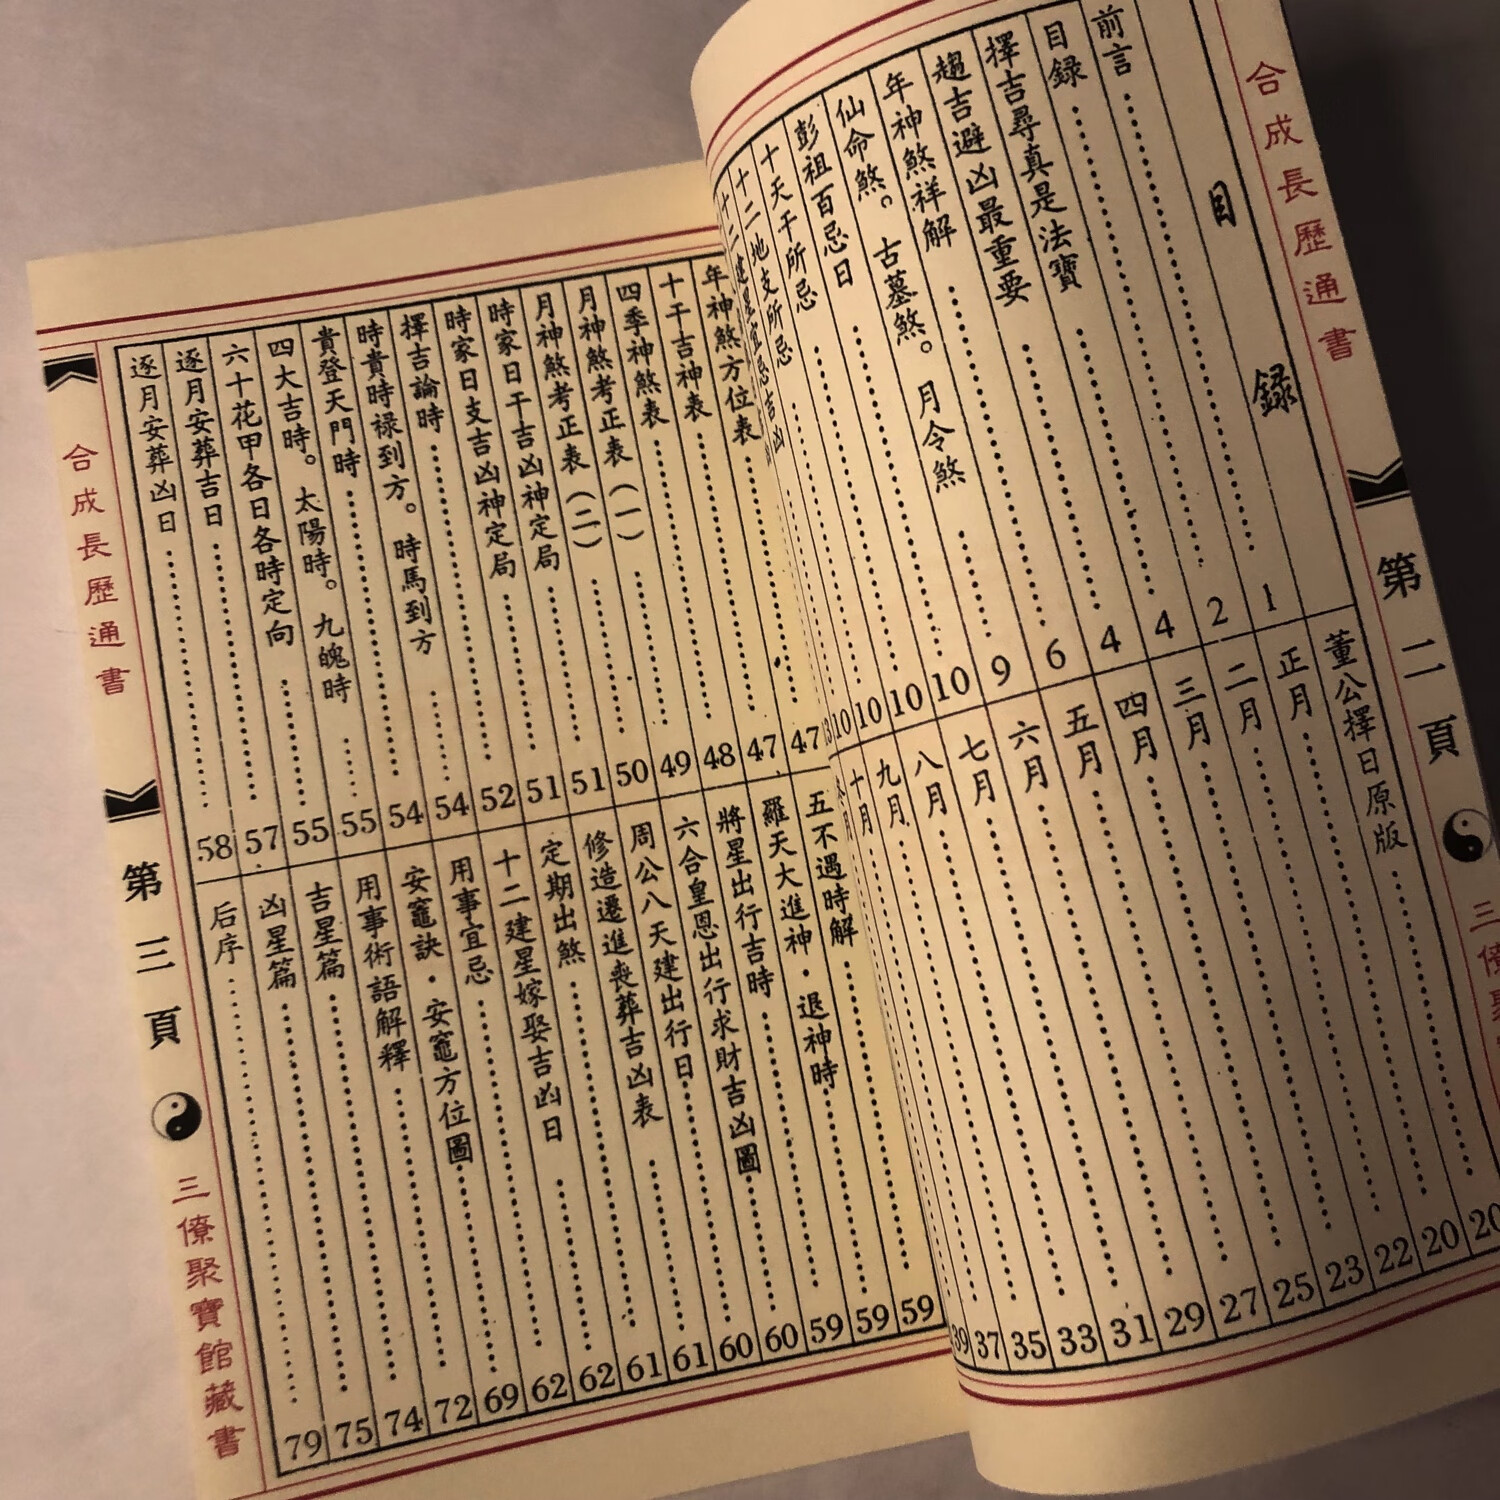 合成長歷通書
第二頁
目錄
前言 1
目錄 2
擇吉尋真是法寶 4
趨吉避凶最重要 4
年神煞祥解 6
仙命煞。古墓煞。月令煞 9
彭祖百忌日 10
十天干所忌 10
十二地支所忌 10
十二建星宜忌吉凶 10
董公擇日原版 20
正月 20
二月 22
三月 23
四月 25
五月 27
六月 29
七月 31
八月 33
九月 35
十月 37
39
年神煞方位表 47
十干吉神表 47
四季神煞表 48
月神煞考正表(一) 49
月神煞考正表(二) 50
時家日干吉凶神定局 51
時家日支吉凶神定局 51
擇吉論時 52
時貴時祿到方。時馬到方 54
貴登天門時 54
四大吉時。太陽時。九魄時 55
六十花甲各日各時定向 55
逐月安葬吉日 57
逐月安葬凶日 58
五不遇時解 59
羅天大進神·退神時 59
將星出行吉時 59
六合皇恩出行求財吉凶圖 60
周公八天建出行日 60
修造遷進喪葬吉凶表 61
定期出煞 61
十二建星嫁娶吉凶日 62
用事宜忌 62
安竈訣·安竈方位圖 69
用事術語解釋 72
吉星篇 74
凶星篇 75
后序 79
合成長歷通書
第三頁
三僚聚寶館藏書